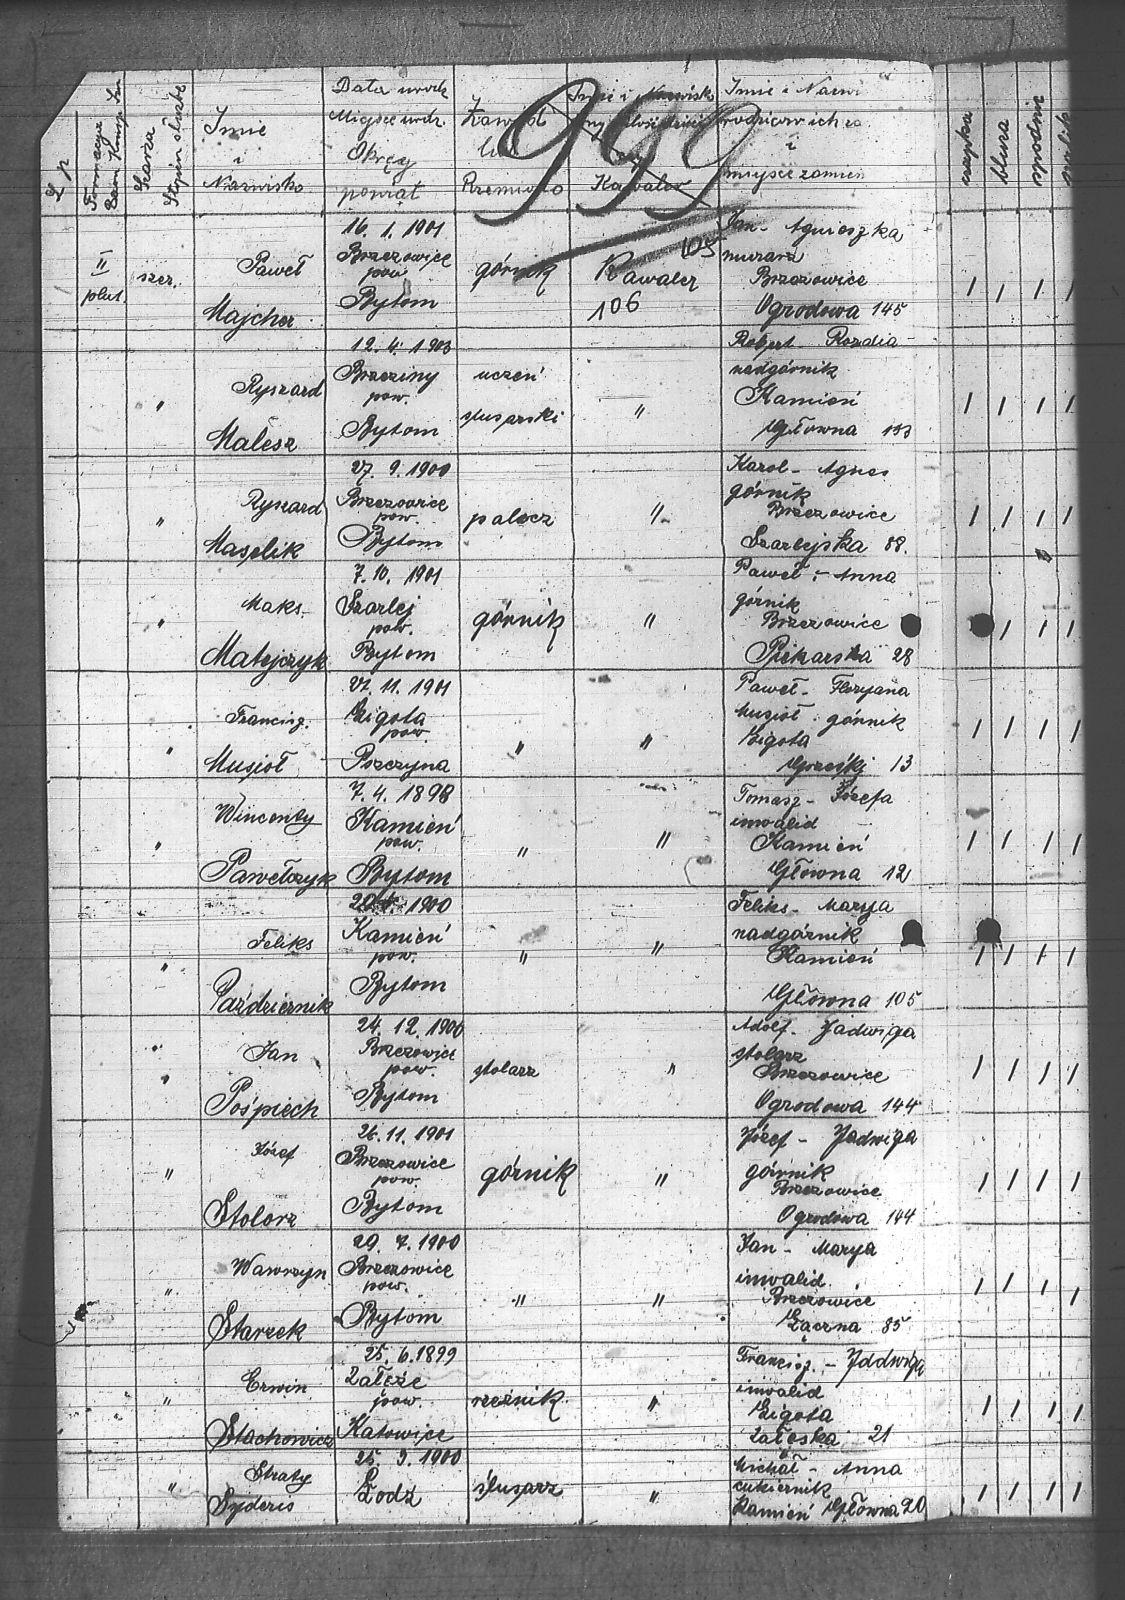 L p
Formacya
Szarża
Stopień służb
Imię
i
Nazwisko
Data urodz
Miejsce urdz.
Okręg
powiat
Zawód
lub
Rzemiosło
Imię i Nazwisko
Kawaler
Imię i Nazwi
rodziców ich za
i
miejsce zamien
czapka
bluza
spodnie
999
105
II plut. szer.
Paweł
Majcher
16. 1. 1901
Brzezowice
pow.
Bytom
górnik
Kawaler
106
Jan - Agnieszka
murarz
Brzozowice
Ogrodowa 145
" Ryszard
Malesz
12. 4. 1903
Brzeziny
pow.
Bytom
uczeń
slusarski
"
Robert - Rozalia
nadgórnik
Kamień
Główna 133
" Ryszard
Maselik
27. 9. 1900
Brzezowice
pow.
Bytom
palacz
"
Karol - Agnes
górnik
Brzezowice
Szarlejska 88.
" Maks.
Matejczyk
7. 10. 1901
Szarlej
pow.
Bytom
górnik
"
Paweł - Anna
górnik
Brzezowice
Piekarska 28
" Francisz.
Musioł
27. 11. 1901
Ligota
pow.
Pszczyna
"
"
Paweł - Floryana
Musioł górnik
Ligota
13
" Wincenty
Pawełczyk
7. 4. 1898
Kamień
pow.
Bytom
"
"
Tomasz - Józefa
inwalid
Kamień
Główna 12
" Feliks
Październik
1900
Kamień
pow.
Bytom
"
"
Feliks - Marya
nadgórnik
Kamień
Główna 105
" Jan
Pośpiech
24. 12. 1900
Brzezowice
pow.
Bytom
stolarz
"
Adolf - Jadwiga
stolarz
Brzezowice
Ogrodowa 144
" Józef
Stolorz
26. 11. 1901
Brzezowice
pow.
Bytom
górnik
"
Józef - Jadwiga
górnik
Brzezowice
Ogrodowa 144
" Wawrzyn
Starzek
29. 7. 1900
Brzezowice
pow.
Bytom
"
"
Jan - Marya
inwalid.
Brzezowice
Łączna 85
" Erwin
Stachowicz
25. 6. 1899
Załęże
pow.
Katowice
rzeźnik
"
Francisz. - Jadwiga
inwalid
Ligota
Załoska 21
" Straty
Syderis
25. 9. 1900
Łodź
ślusarz
"
Michał - Anna
cukiernik
Kamień Główna 20